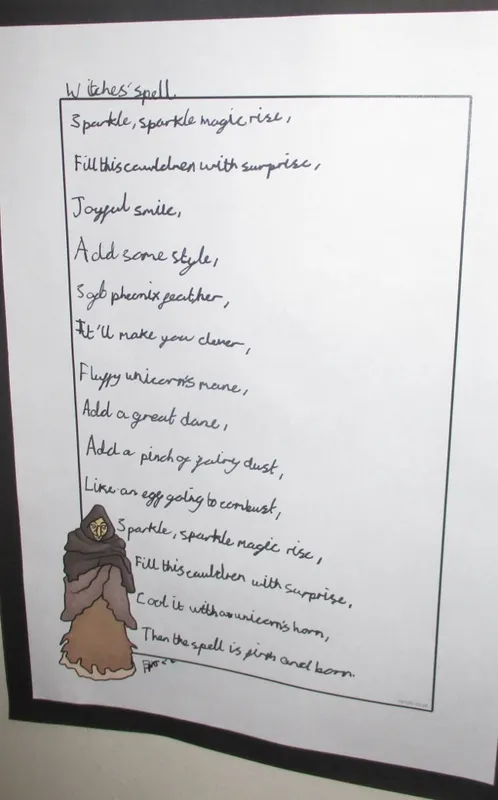 Witches' spell.
Sparkle, sparkle magic rise,
Fill this cauldren with surprise,
Joyful smile,
Add some style,
phoenix feather,
It'll make you clever,
Fluffy unicorn's mane,
Add a great dane,
Add a pinch of fairy dust,
Like an egg going to combust,
Sparkle, sparkle magic rise,
Fill this cauldren with surprise,
Cool it with a unicorn's horn,
Then the spell is firm and born.